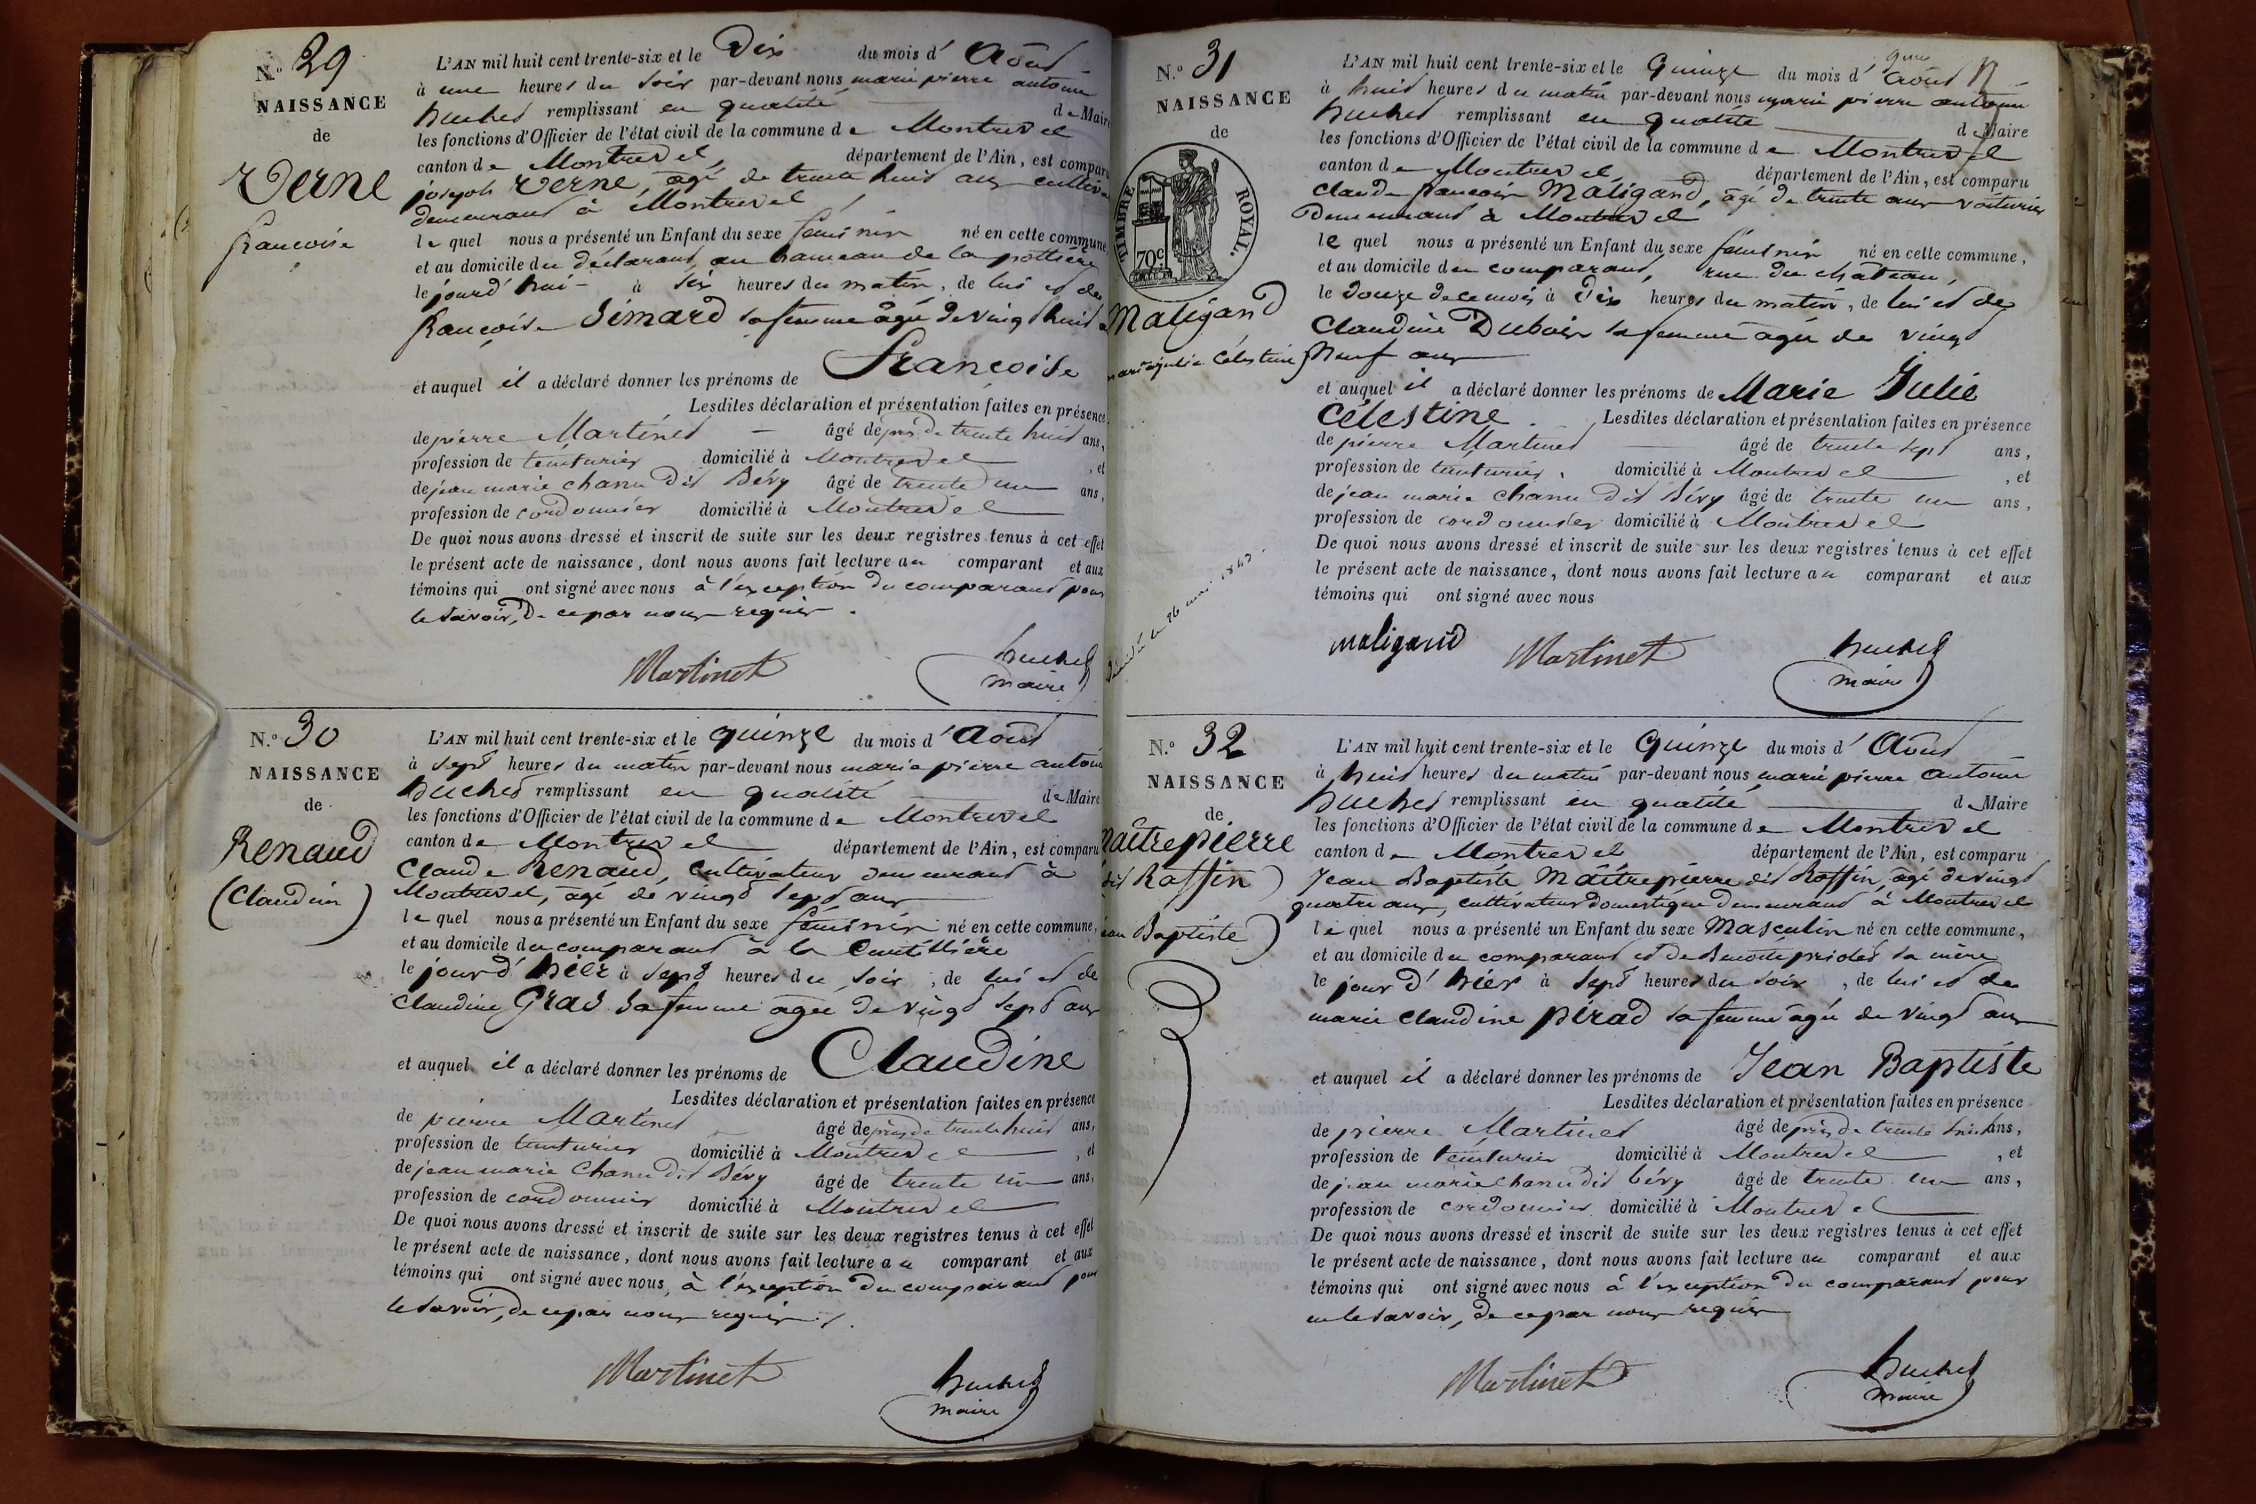 N.º 29
NAISSANCE
de
Verne
françoise
L'AN mil huit cent trente-six et le Dix du mois d' Août
à une heures du soir par-devant nous marie pierre antoine
huchet remplissant en qualité de Maire
les fonctions d'Officier de l'état civil de la commune de Montrevel
canton de Montrevel, département de l'Ain, est comparu
joseph Verne, agé de trente huit ans cultiv
demeurant à Montrevel
le quel nous a présenté un Enfant du sexe féminin né en cette commune
et au domicile du déclarant, au hameau de la
le jourd'hui à six heures du matin, de lui et de
françoise Simard sa femme âgée de vingt huit
et auquel il a déclaré donner les prénoms de Françoise
Lesdites déclaration et présentation faites en présence
de pierre Martinet âgé de près de trente huit ans,
profession de teinturier domicilié à Montrevel, et
de jean marie chanu dit Bévy âgé de trente un ans,
profession de cordonnier domicilié à Montrevel
De quoi nous avons dressé et inscrit de suite sur les deux registres tenus à cet effet
le présent acte de naissance, dont nous avons fait lecture au comparant et aux
témoins qui ont signé avec nous à l'exception du comparant pour
le savoir, de ce par nous requis.
Martinet
huchet
maire
N.º 30
NAISSANCE
de
Renaud
(Claudine)
L'AN mil huit cent trente-six et le quinze du mois d' Août
à sept heures du matin par-devant nous marie pierre antoine
huchet remplissant en qualité de Maire
les fonctions d'Officier de l'état civil de la commune de Montrevel
canton de Montrevel département de l'Ain, est comparu
Claude Renaud, cultivateur demeurant à
Montrevel, agé de vingt sept ans
le quel nous a présenté un Enfant du sexe féminin né en cette commune,
et au domicile du comparant à la
le jour d'hier à sept heures du soir, de lui et de
Claudine Gras sa femme agée de vingt sept ans
et auquel il a déclaré donner les prénoms de Claudine
Lesdites déclaration et présentation faites en présence
de pierre Martinet âgé de près de trente huit ans,
profession de teinturier domicilié à Montrevel, et
de jean marie Chanu dit Bévy âgé de trente un ans,
profession de cordonnier domicilié à Montrevel
De quoi nous avons dressé et inscrit de suite sur les deux registres tenus à cet effet
le présent acte de naissance, dont nous avons fait lecture au comparant et aux
témoins qui ont signé avec nous, à l'exception du comparant pour
le savoir, de ce par nous requis.
Martinet
huchet
maire
N.º 31
NAISSANCE
de
TIMBRE ROYAL.
70c
Maligand
marie julie Célestine
le 26 mai
L'AN mil huit cent trente-six et le Quinze du mois d' Août
à huit heures du matin par-devant nous marie pierre antoine
huchet remplissant en qualité de Maire
les fonctions d'Officier de l'état civil de la commune de Montrevel
canton de Montrevel, département de l'Ain, est comparu
Claude françois Maligand, agé de trente ans voiturier
Demeurant à Montrevel
le quel nous a présenté un Enfant du sexe féminin né en cette commune,
et au domicile du comparant, rue du château,
le douze de ce mois à Dix heures du matin, de lui et de
Claudine Dubois sa femme agée de vingt
neuf ans
et auquel il a déclaré donner les prénoms de Marie Julie
Célestine. Lesdites déclaration et présentation faites en présence
de pierre Martinet âgé de trente sept ans,
profession de teinturier, domicilié à Montrevel, et
de jean marie chanu dit Bévy âgé de trente un ans,
profession de cordonnier domicilié à Montrevel
De quoi nous avons dressé et inscrit de suite sur les deux registres tenus à cet effet
le présent acte de naissance, dont nous avons fait lecture au comparant et aux
témoins qui ont signé avec nous
maligand
Martinet
huchet
maire
N.º 32
NAISSANCE
de
Maîtrepierre
dit Roffin
jean Baptiste)
L'AN mil huit cent trente-six et le Quinze du mois d' Août
à huit heures du matin par-devant nous, marie pierre antoine
huchet remplissant en qualité de Maire
les fonctions d'Officier de l'état civil de la commune de Montrevel
canton de Montrevel département de l'Ain, est comparu
Jean Baptiste Maîtrepierre dit Roffin, agé de vingt
quatre ans, cultivateur domestique demeurant à Montrevel
le quel nous a présenté un Enfant du sexe Masculin né en cette commune,
et au domicile du comparant et de Benoite sa mère
le jour d'hier à sept heures du soir, de lui et de
marie Claudine Pirad sa femme agée de vingt ans
et auquel il a déclaré donner les prénoms de Jean Baptiste
Lesdites déclaration et présentation faites en présence
de pierre Martinet âgé de près de trente huit ans,
profession de teinturier domicilié à Montrevel, et
de jean marie Chanu dit bévy âgé de trente un ans,
profession de cordonnier domicilié à Montrevel
De quoi nous avons dressé et inscrit de suite sur les deux registres tenus à cet effet
le présent acte de naissance, dont nous avons fait lecture au comparant et aux
témoins qui ont signé avec nous à l'exception du comparant pour
ne le savoir, de ce par nous requis
Martinet
huchet
maire